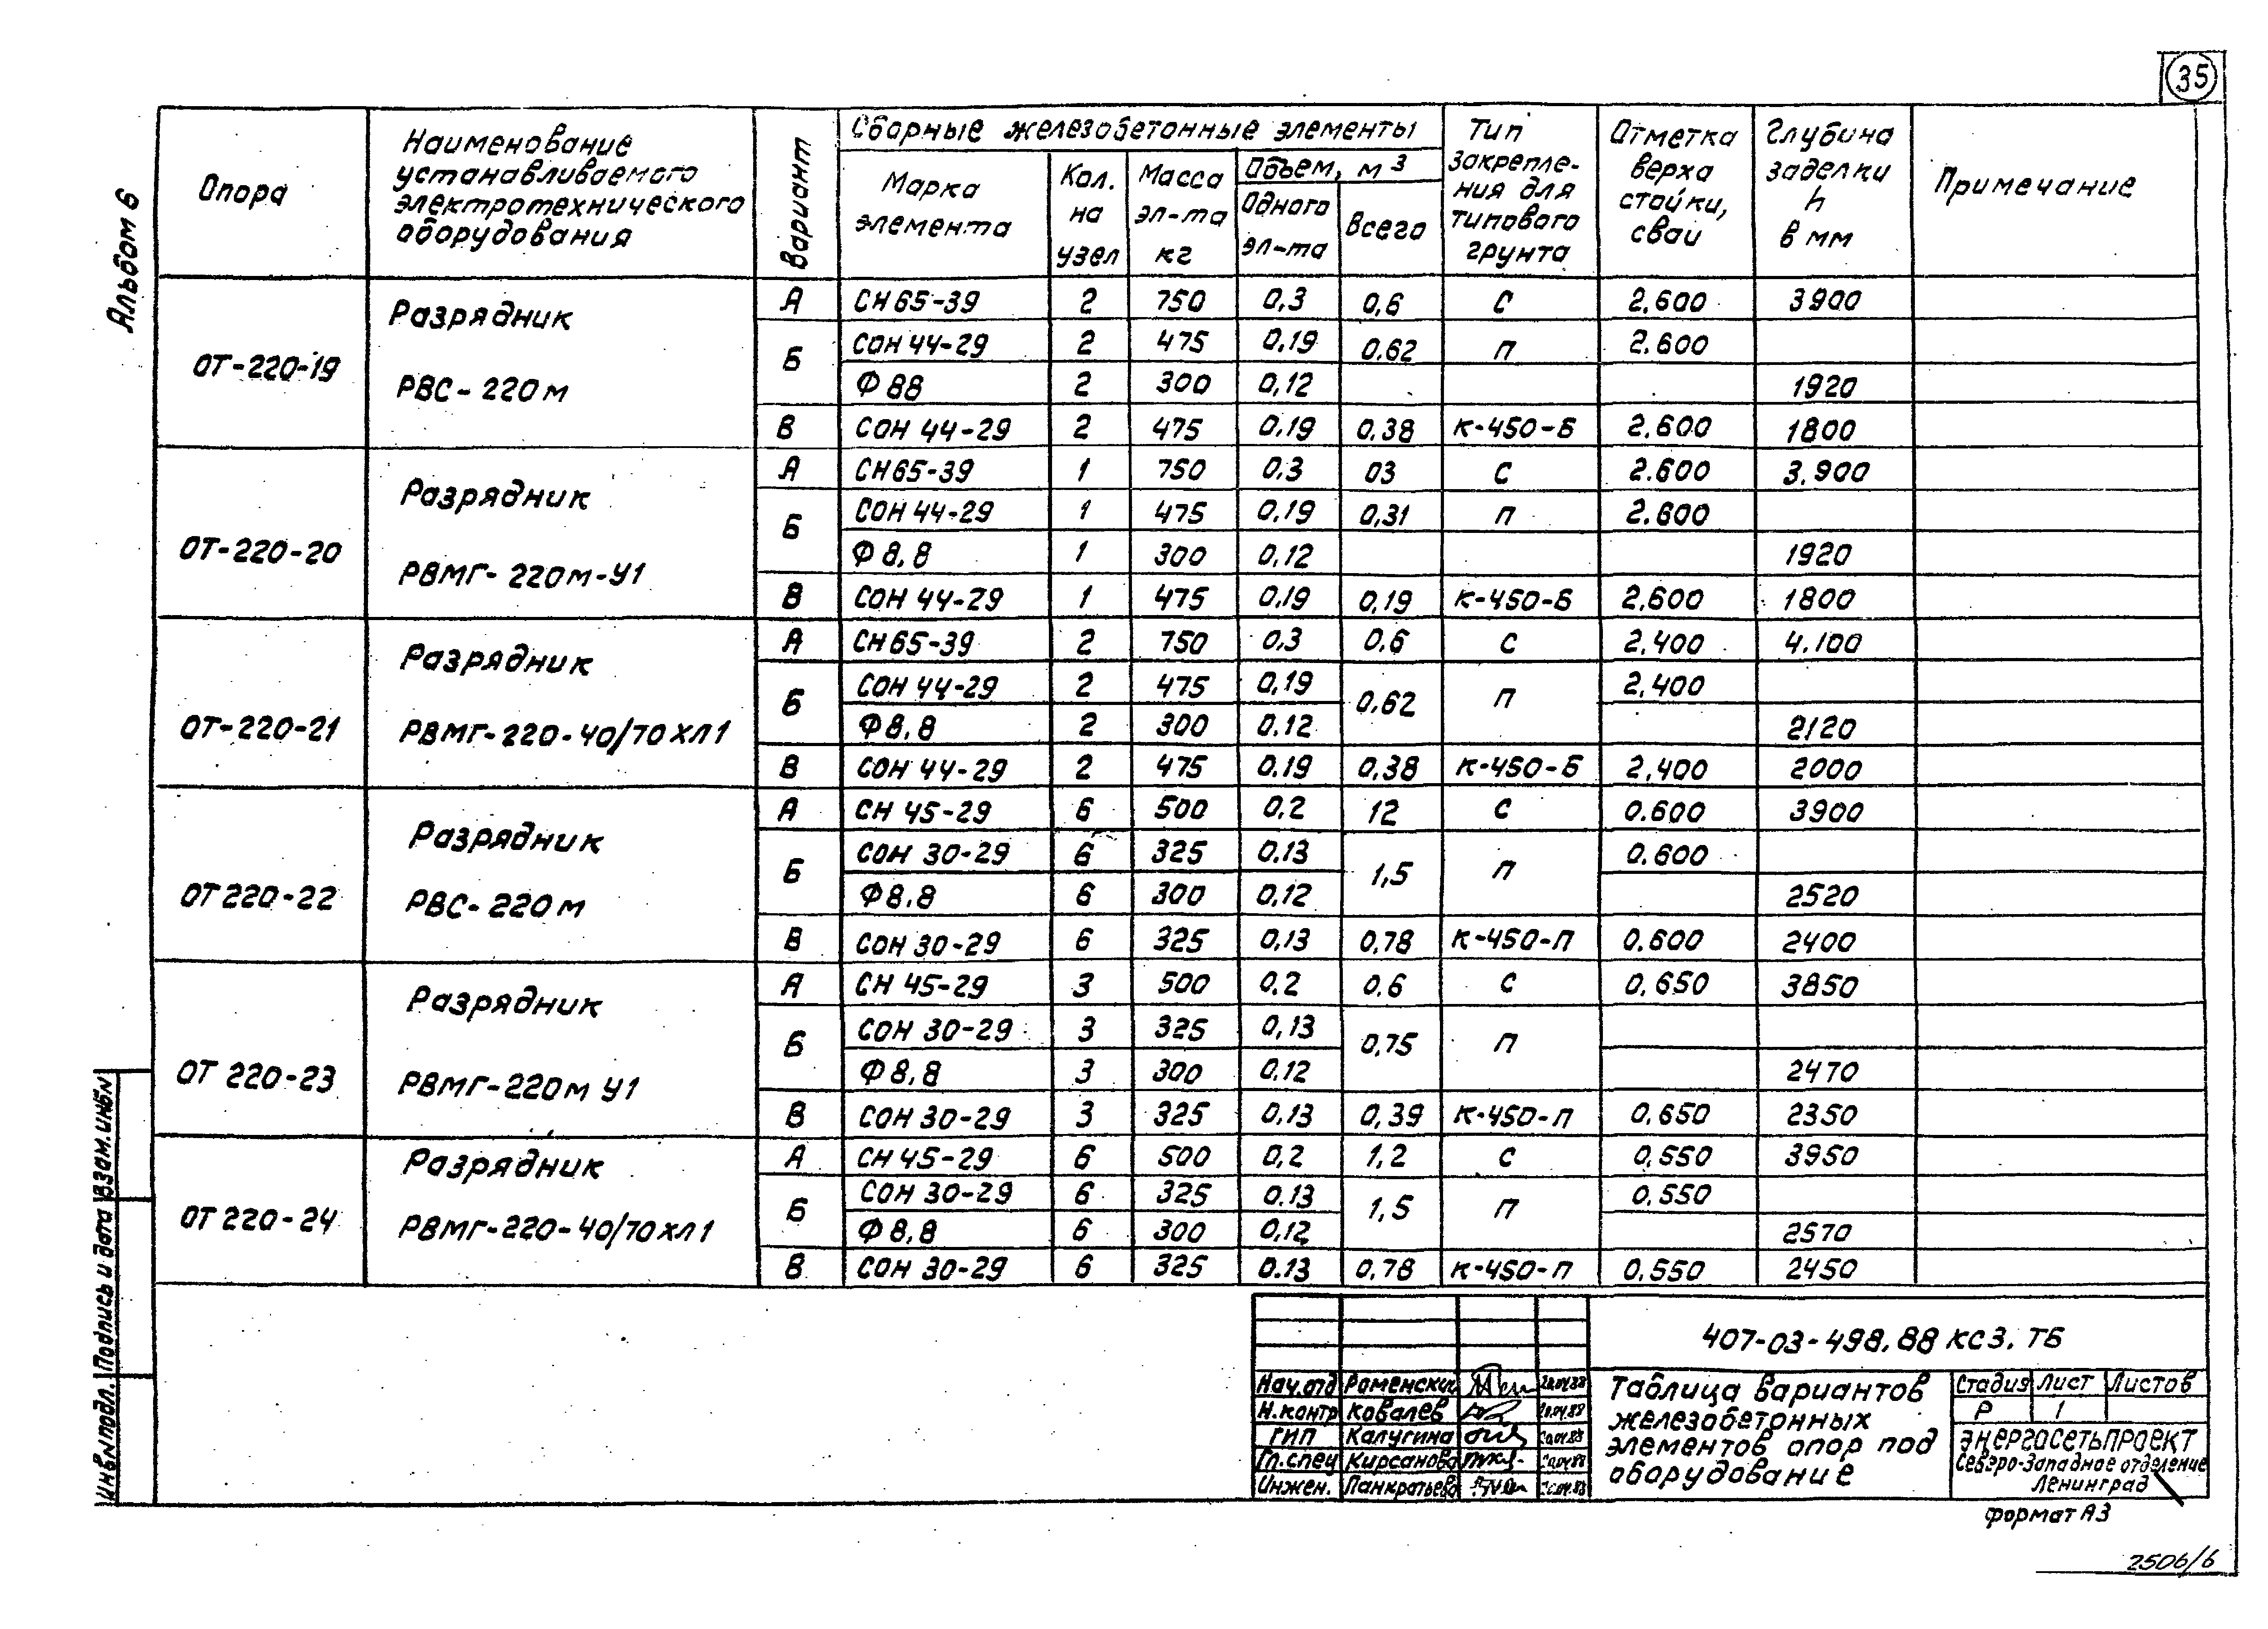 35
Альбом 6
Опора
Наименование
устанавливаемого
электротехнического
оборудования
Вариант
Сборные железобетонные элементы
Марка
элемента
Кол.
на
узел
Масса
эл-та
кг
Объем, м³
Одного
эл-та
Всего
Тип
закрепле-
ния для
типового
грунта
Отметка
верха
стойки,
сваи
Глубина
заделки
h
в мм
Примечание
ОТ-220-19 Разрядник РВС-220м
А СН65-39 2 750 0,3 0,6 С 2,600 3900
Б СОН 44-29 2 475 0,19 0.62 П 2.600
Ф 88 2 300 0,12 1920
В СОН 44-29 2 475 0,19 0.38 К-450-Б 2.600 1800
ОТ-220-20 Разрядник РВМГ-220м-У1
А СН65-39 1 750 0.3 03 С 2.600 3.900
Б СОН 44-29 1 475 0,19 0,31 П 2.600
Ф 8,8 1 300 0,12 1920
В СОН 44-29 1 475 0,19 0,19 К-450-Б 2,600 1800
ОТ-220-21 Разрядник РВМГ-220-40/70ХЛ1
А СН65-39 2 750 0,3 0,6 С 2,400 4.100
Б СОН 44-29 2 475 0,19 0,62 П 2,400
Ф8,8 2 300 0.12 2120
В СОН 44-29 2 475 0.19 0,38 К-450-Б 2,400 2000
ОТ220-22 Разрядник РВС-220м
А СН 45-29 6 500 0,2 12 С 0.600 3900
Б СОН 30-29 6 325 0.13 1,5 П 0.600
Ф8.8 6 300 0,12 2520
В СОН 30-29 6 325 0,13 0,78 К-450-П 0.600 2400
ОТ 220-23 Разрядник РВМГ-220м У1
А СН 45-29 3 500 0.2 0.6 С 0,650 3850
Б СОН 30-29 3 325 0,13 0,75 П
Ф 8,8 3 300 0.12 2470
В СОН 30-29 3 325 0.13 0,39 К-450-П 0,650 2350
ОТ220-24 Разрядник РВМГ-220-40/70ХЛ1
А СН 45-29 6 500 0,2 1,2 С 0,550 3950
Б СОН 30-29 6 325 0.13 1,5 П 0,550
Ф 8,8 6 300 0,12 2570
В СОН 30-29 6 325 0.13 0,78 К-450-П 0,550 2450
Инв.№подл. Подпись и дата Взам.инв№
407-03-498.88 КС3. ТБ
Нач.отд Роменский 20.04.88
Н.контр Ковалев 20.04.88
ГИП Калугина 20.04.88
Гл.спец Кирсанова 20.04.88
Инжен. Панкратьева 20.04.88
Таблица вариантов
железобетонных
элементов опор под
оборудование
Стадия Лист Листов
Р 1
ЭНЕРГОСЕТЬПРОЕКТ
Северо-Западное отделение
Ленинград
Формат А3
2506/6